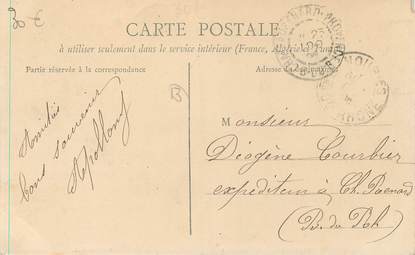 30 €
CARTE POSTALE
à utiliser seulement dans le service intérieur (France, Algérie et Tunisie)
Partie réservée à la correspondance
Adresse du destinataire
B
Amitiés
bons souvenirs
Monsieur
Diogène Courbier
expéditeur à Ch. Renard
(B. du Rh)